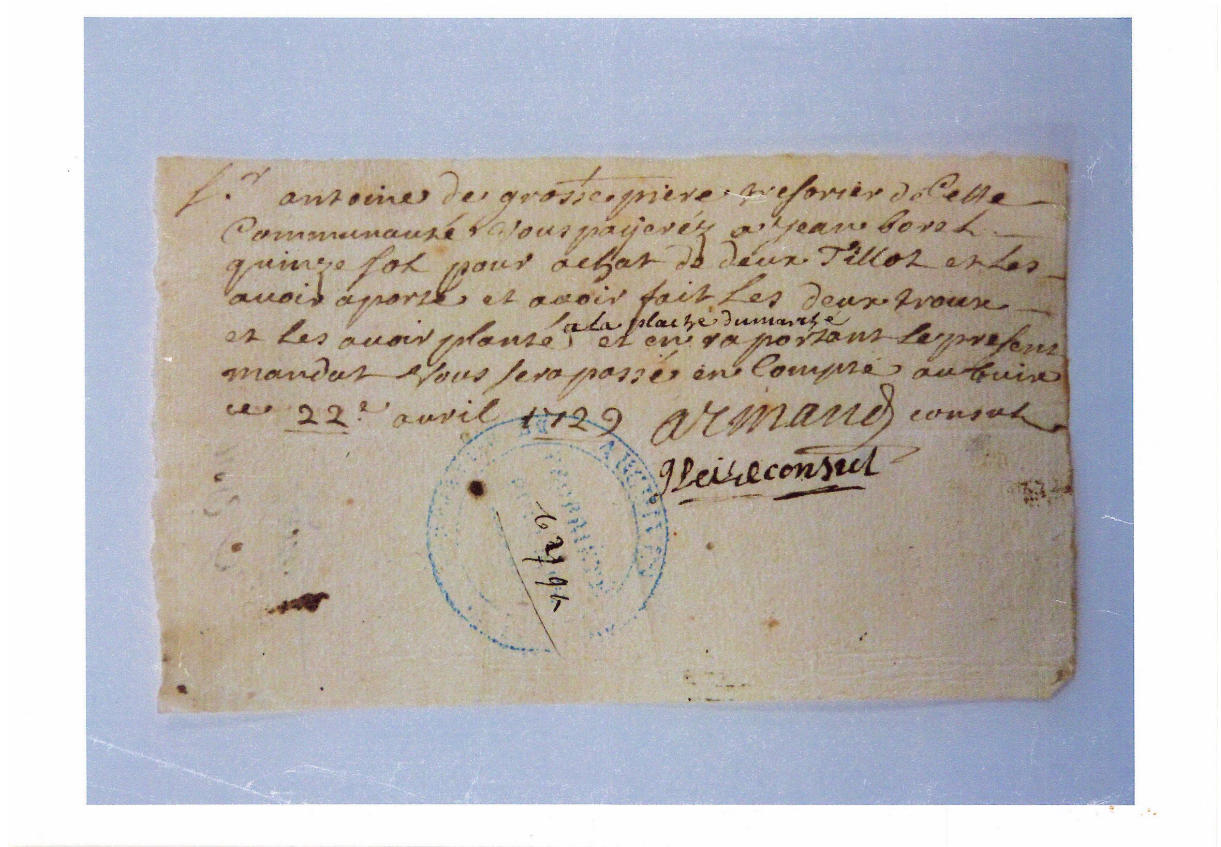 S.r antoine de grosse piere tresorier de Cette
Communauté vous payeréz a jean borel
quinze sol pour achat de deux Tillot et Les
avoir aporté et avoir fait Les deux troux
a la plache du marche
et les avoir planté et en raportant le present
mandat vous sera passé en Compte au buire
ce 22e avril 1729 armand consul
consul
ARCHIVES